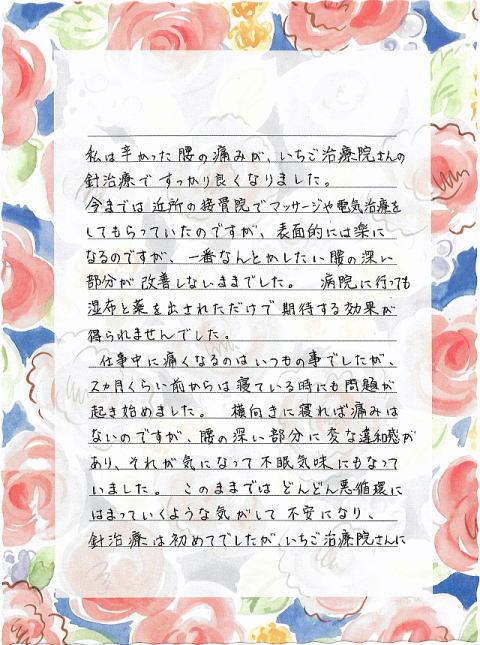 私は辛かった腰の痛みが、いちご治療院さんの
針治療ですっかり良くなりました。
今までは近所の接骨院でマッサージや電気治療を
してもらっていたのですが、表面的には楽に
なるのですが、一番なんとかしたい腰の深い
部分が改善しないままでした。 病院に行っても
湿布と薬を出されただけで期待する効果が
得られませんでした。
仕事中に痛くなるのはいつもの事でしたが、
2ヵ月くらい前からは寝ている時にも問題が
起き始めました。 横向きに寝れば痛みは
ないのですが、腰の深い部分に変な違和感が
あり、それが気になって不眠気味にもなって
いました。 このままではどんどん悪循環に
はまっていくような気がして不安になり、
針治療は初めてでしたが、いちご治療院さんに